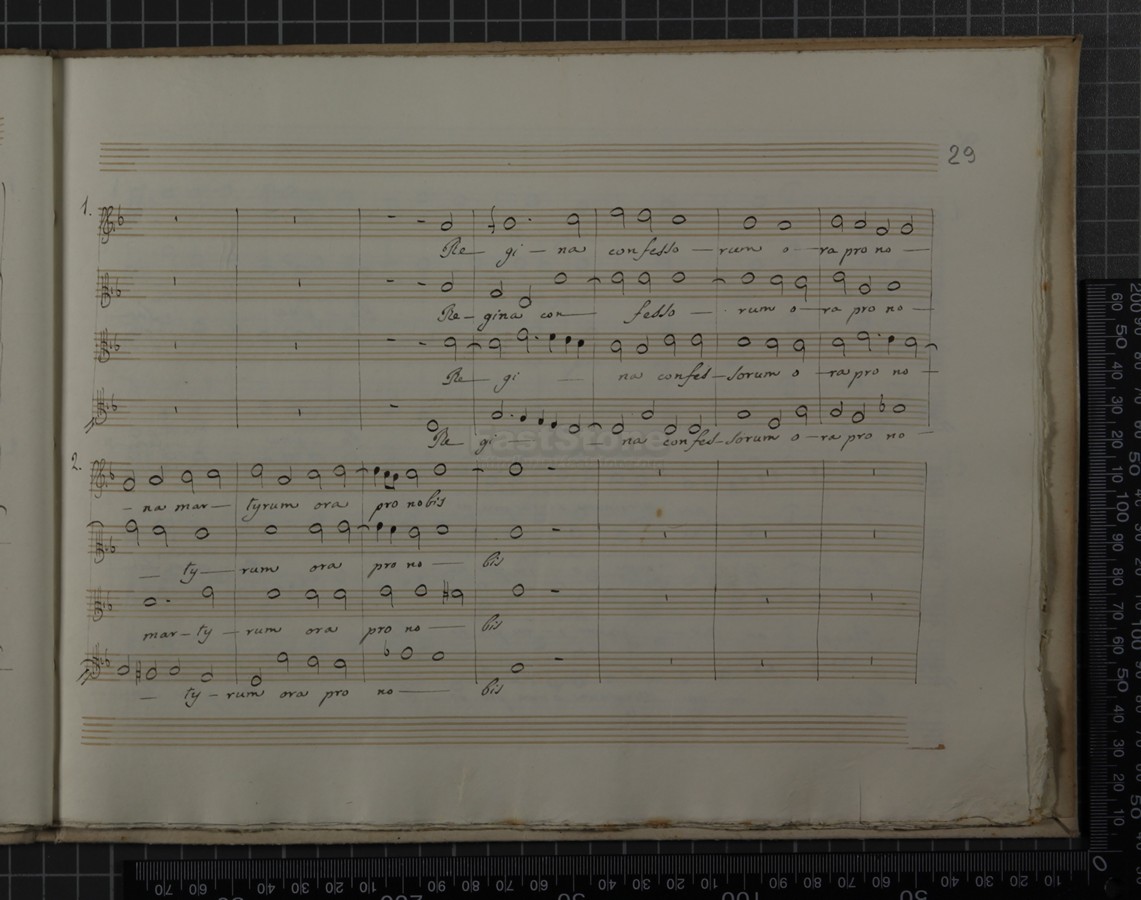 29
1.
Re — gi — na confesso — rum o — ra pro no —
Re — gina con — fesso — rum o — ra pro no —
Re — gi — na confes — sorum o — ra pro no —
Re — gi — na confes — sorum o — ra pro no —
2.
— na mar — tyrum ora pro nobis
— ty — rum ora pro no — bis
mar — ty — rum ora pro no — bis
— ty — rum ora pro no — bis